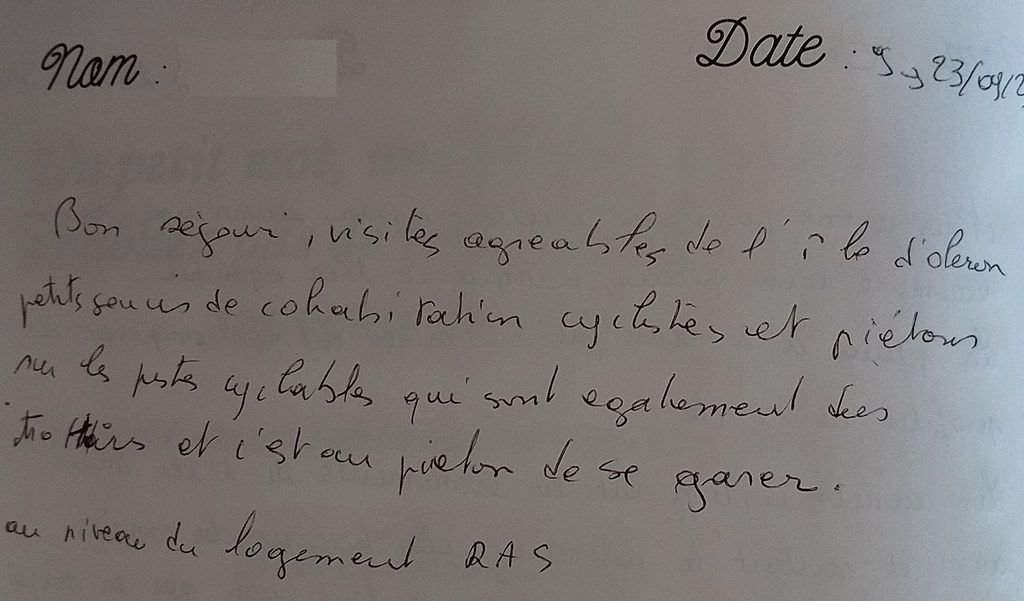 Nom :
Date : 9 → 23/09/2
Bon séjour, visites agreables de l'île d'oleron
petits soucis de cohabitation cyclistes et piétons
sur les pistes cyclables qui sont egalement des
trottoirs et c'est au pieton de se garer.
au niveau du logement RAS